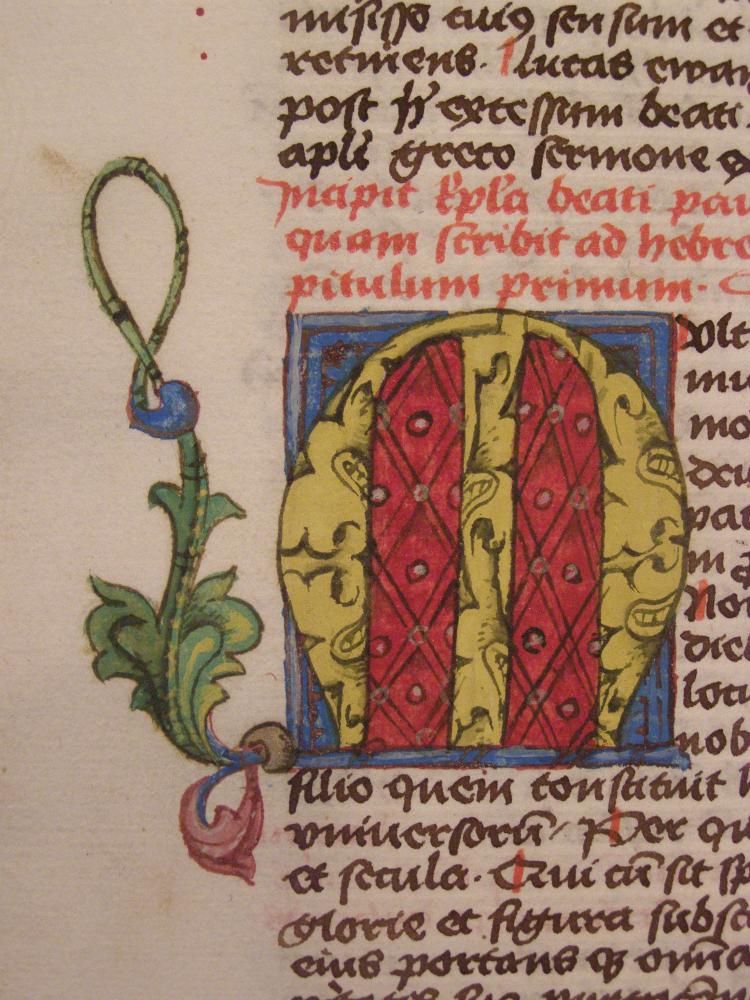 misisse cuiꝰ sensum et
retinens. lucas ewan
post h̅ excessum beati
apl̅i greco sermone
Incipit ep̅l̅a beati pau
quam scribit ad hebre
pitulum primum. C
M ult
mu
mo
deu
pat
in
Nou
dieb
locu
nob
filio quem constituit h
vniuersorū Per qu
et secula. Qui cū sit sp
glorie et figura subsa
eius portans qꝫ om̅a